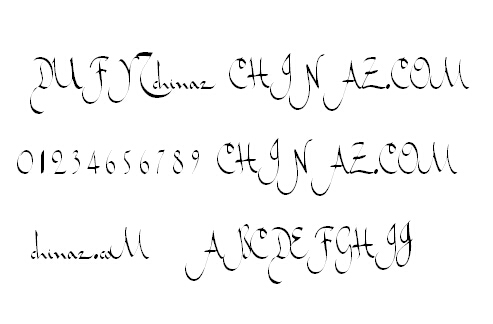 DUFY chinaz CHINAZ.COM
01234656789 CHINAZ.COM
chinaz.coM ABCDEFGHIJ